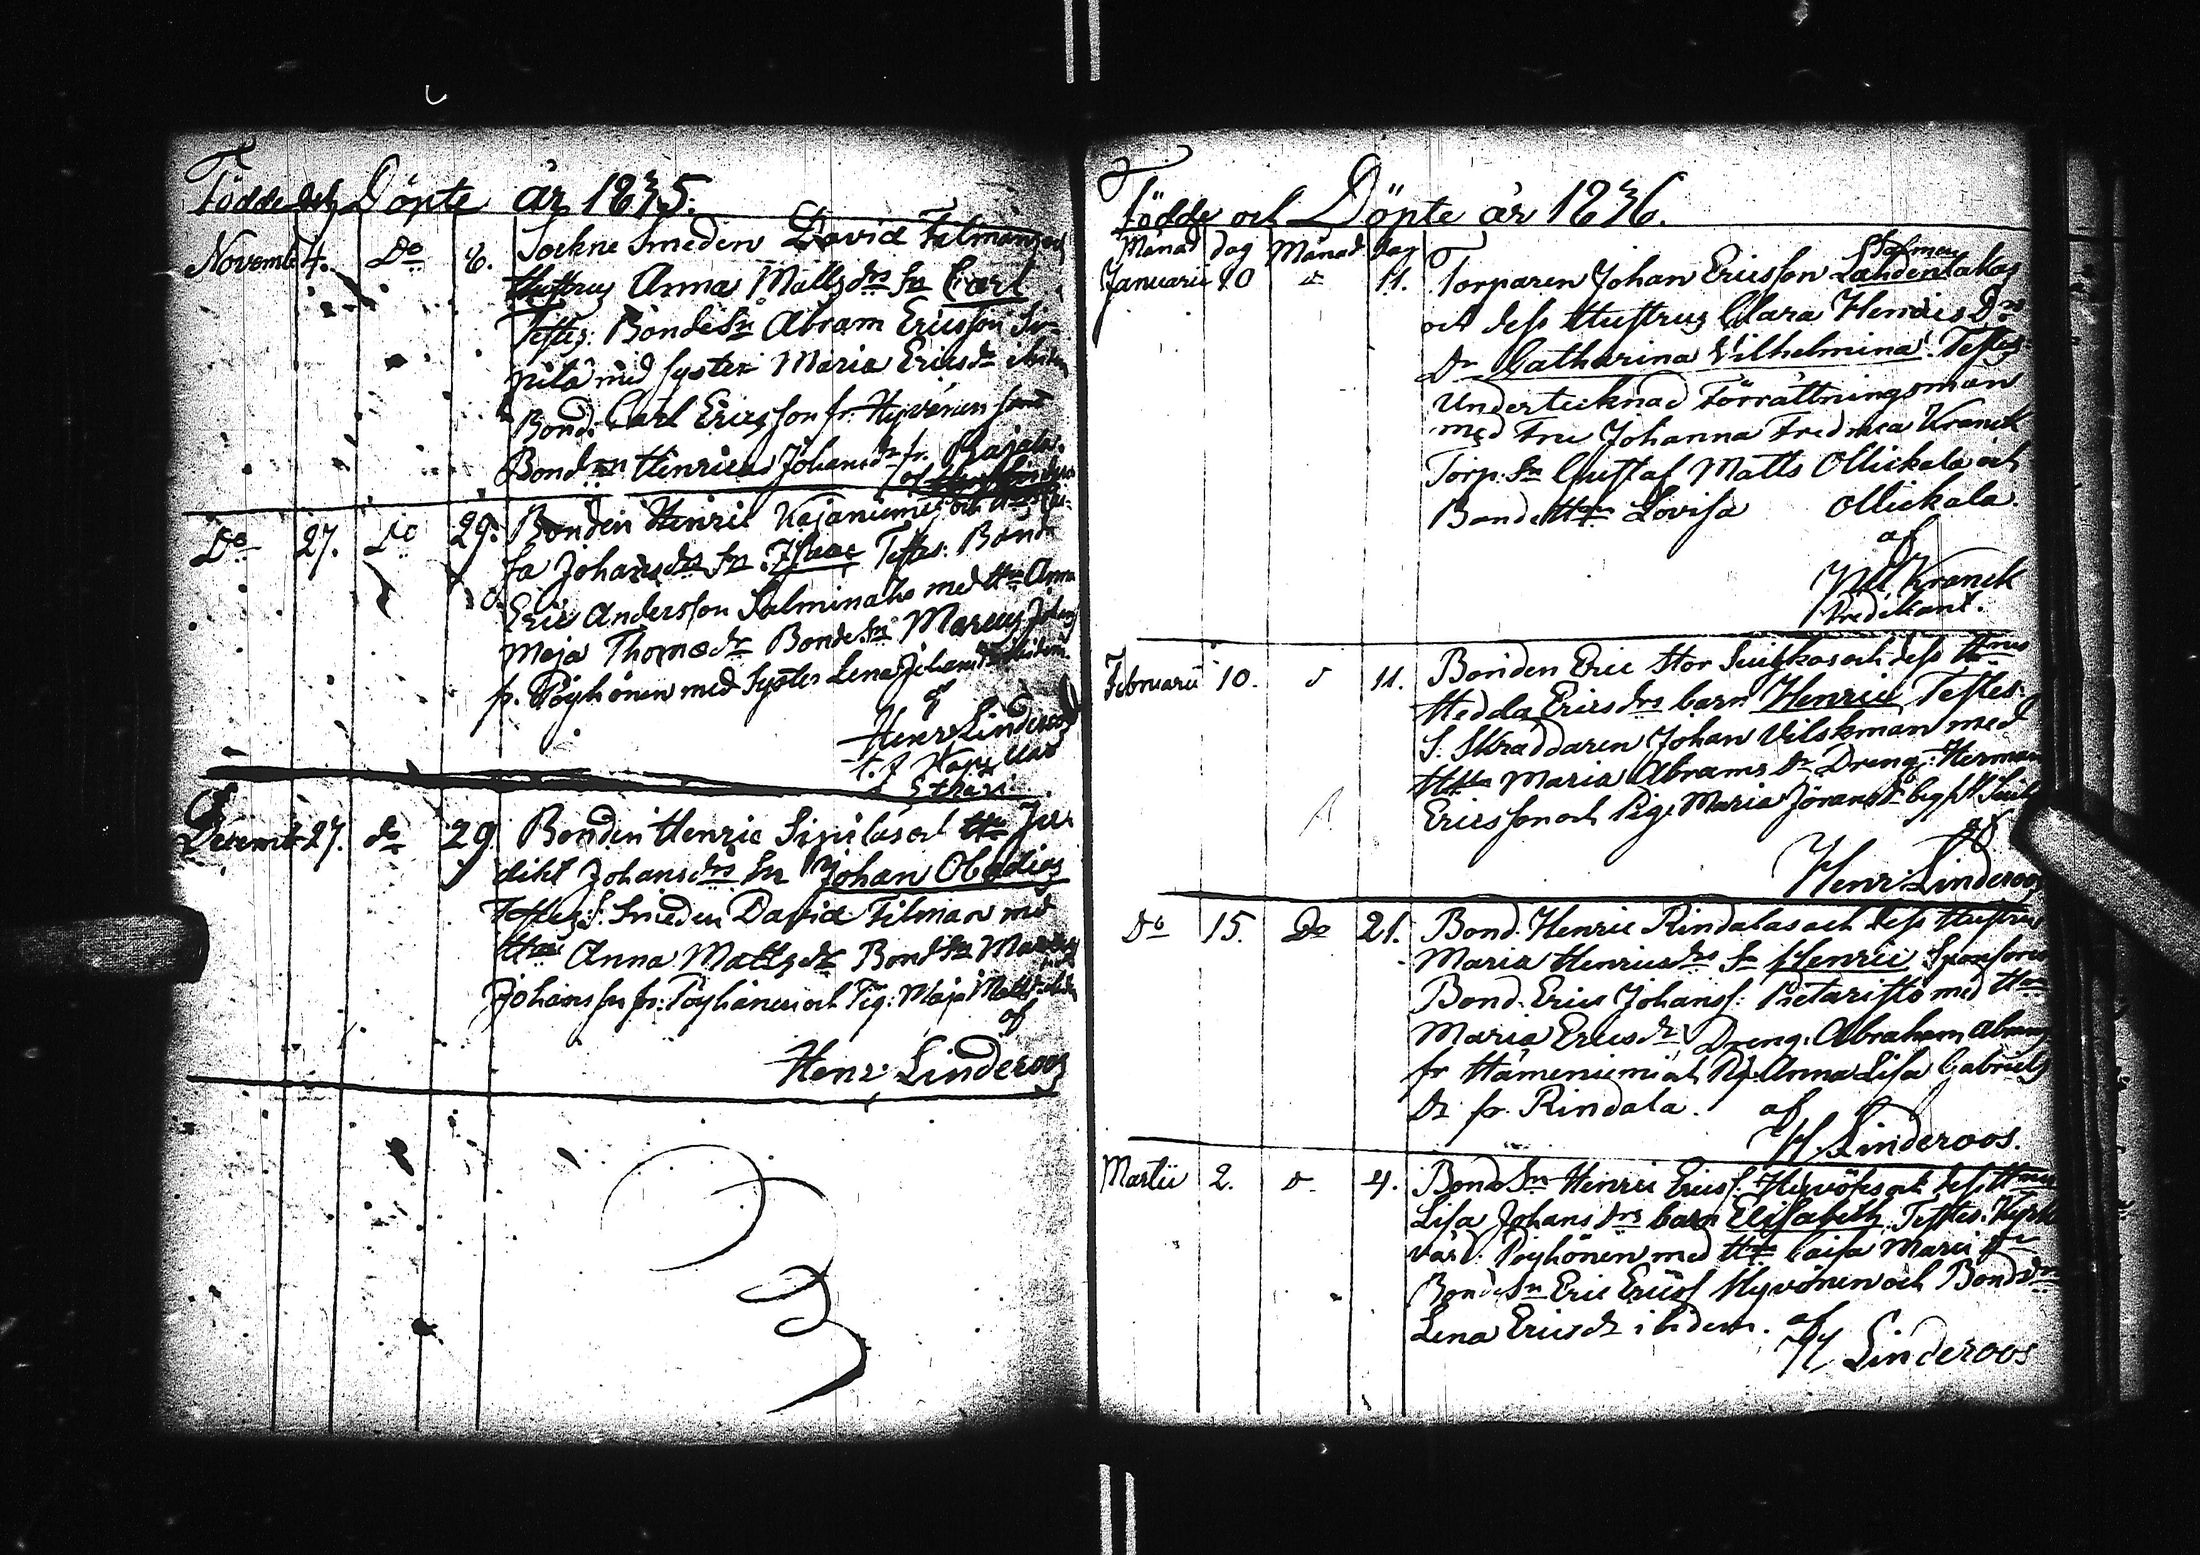 Födde och Döpte år 1835.
Novemb 4. Do 6. Sockne Smeden David Filman och
Hustrus Anna Matts drs Sn Carl
Testes: Bonde Sn Abram Ericsson Si-
pilä med syster Maria Ericsdr ibidem
Bond. Carl Ericsson fr. Hyvönen samt
Bond Henrica Johansdr fr.
Do 27. Do 29. Bonden Henric Kajaniemis och
sa Johans drs Sn Isaac Testes: Bond
Eric Andersson Salminaho med Hu Anna
Maja Thomædr Bonde Sn Marcus Johans
fr. Pöyhönen med Syster Lena Johansdr ibidem
af
Henr Linderoos
t. f. Kapp
Etseri
Decemb 27. do 29 Bonden Henric Sipilas och Hu Ju-
dikt Johansdrs Sn Johan Obadias
Testes: S. Smeden David Filman med
Hu Anna Mattsdr Bond Sn Marcus
Johansson fr: Pöyhänen och Pig: Maja Mattsdr ibidem
af
Henr: Linderoos
Födde och Döpte år 1836.
Månad dag Månad dag
Januarii 10 d 11. Torparen Johan Ericsson Lahdenlahas
och dess Hustrus Clara Henrics Drs
Dr Catharina Vilhelmina. Testes
Undertecknad Förrättningsman
med Fru Johanna Fredrica Kranck
Torp. Sn Gustaf Matts Ollickala och
Bonde Hu Lovisa Ollickala.
af
Kranck
Predikant.
Februarii 10. d 11. Bonden Eric Stor och dess Hus
Hedda Ericsdrs barn Henric Testes.
S. Skräddaren Johan Vilskman med
Hu Maria Abrams dr Dreng: Herman
Ericsson och Pig. Maria Jörans dr
af
Henr: Linderoos
Do 15. Do 21. Bond. Henric Rindalas och dess Hustrus
Maria Henricsdrs Sn Henric Sponsores
Bond. Eric Johans s: Pietaristö med Hu
Maria Ericsdr Dreng. Abraham Abrams
fr Hämeniemi och Pig. Anna Lisa Gabriels
dr fr. Rindala. af
H. Linderoos.
Martii 2. d 4. Bond Sn Henric Erics s. Hyvönes och dess Hus
Lisa Johans drs barn Elisabeth Testes. Kyrk
värd: Pöyhönen med Hu Caisa Marci dr
Bonde Sn Eric Erics s Hyvönen och Bond dr
Lena Erics dr ibidem. af
H Linderoos